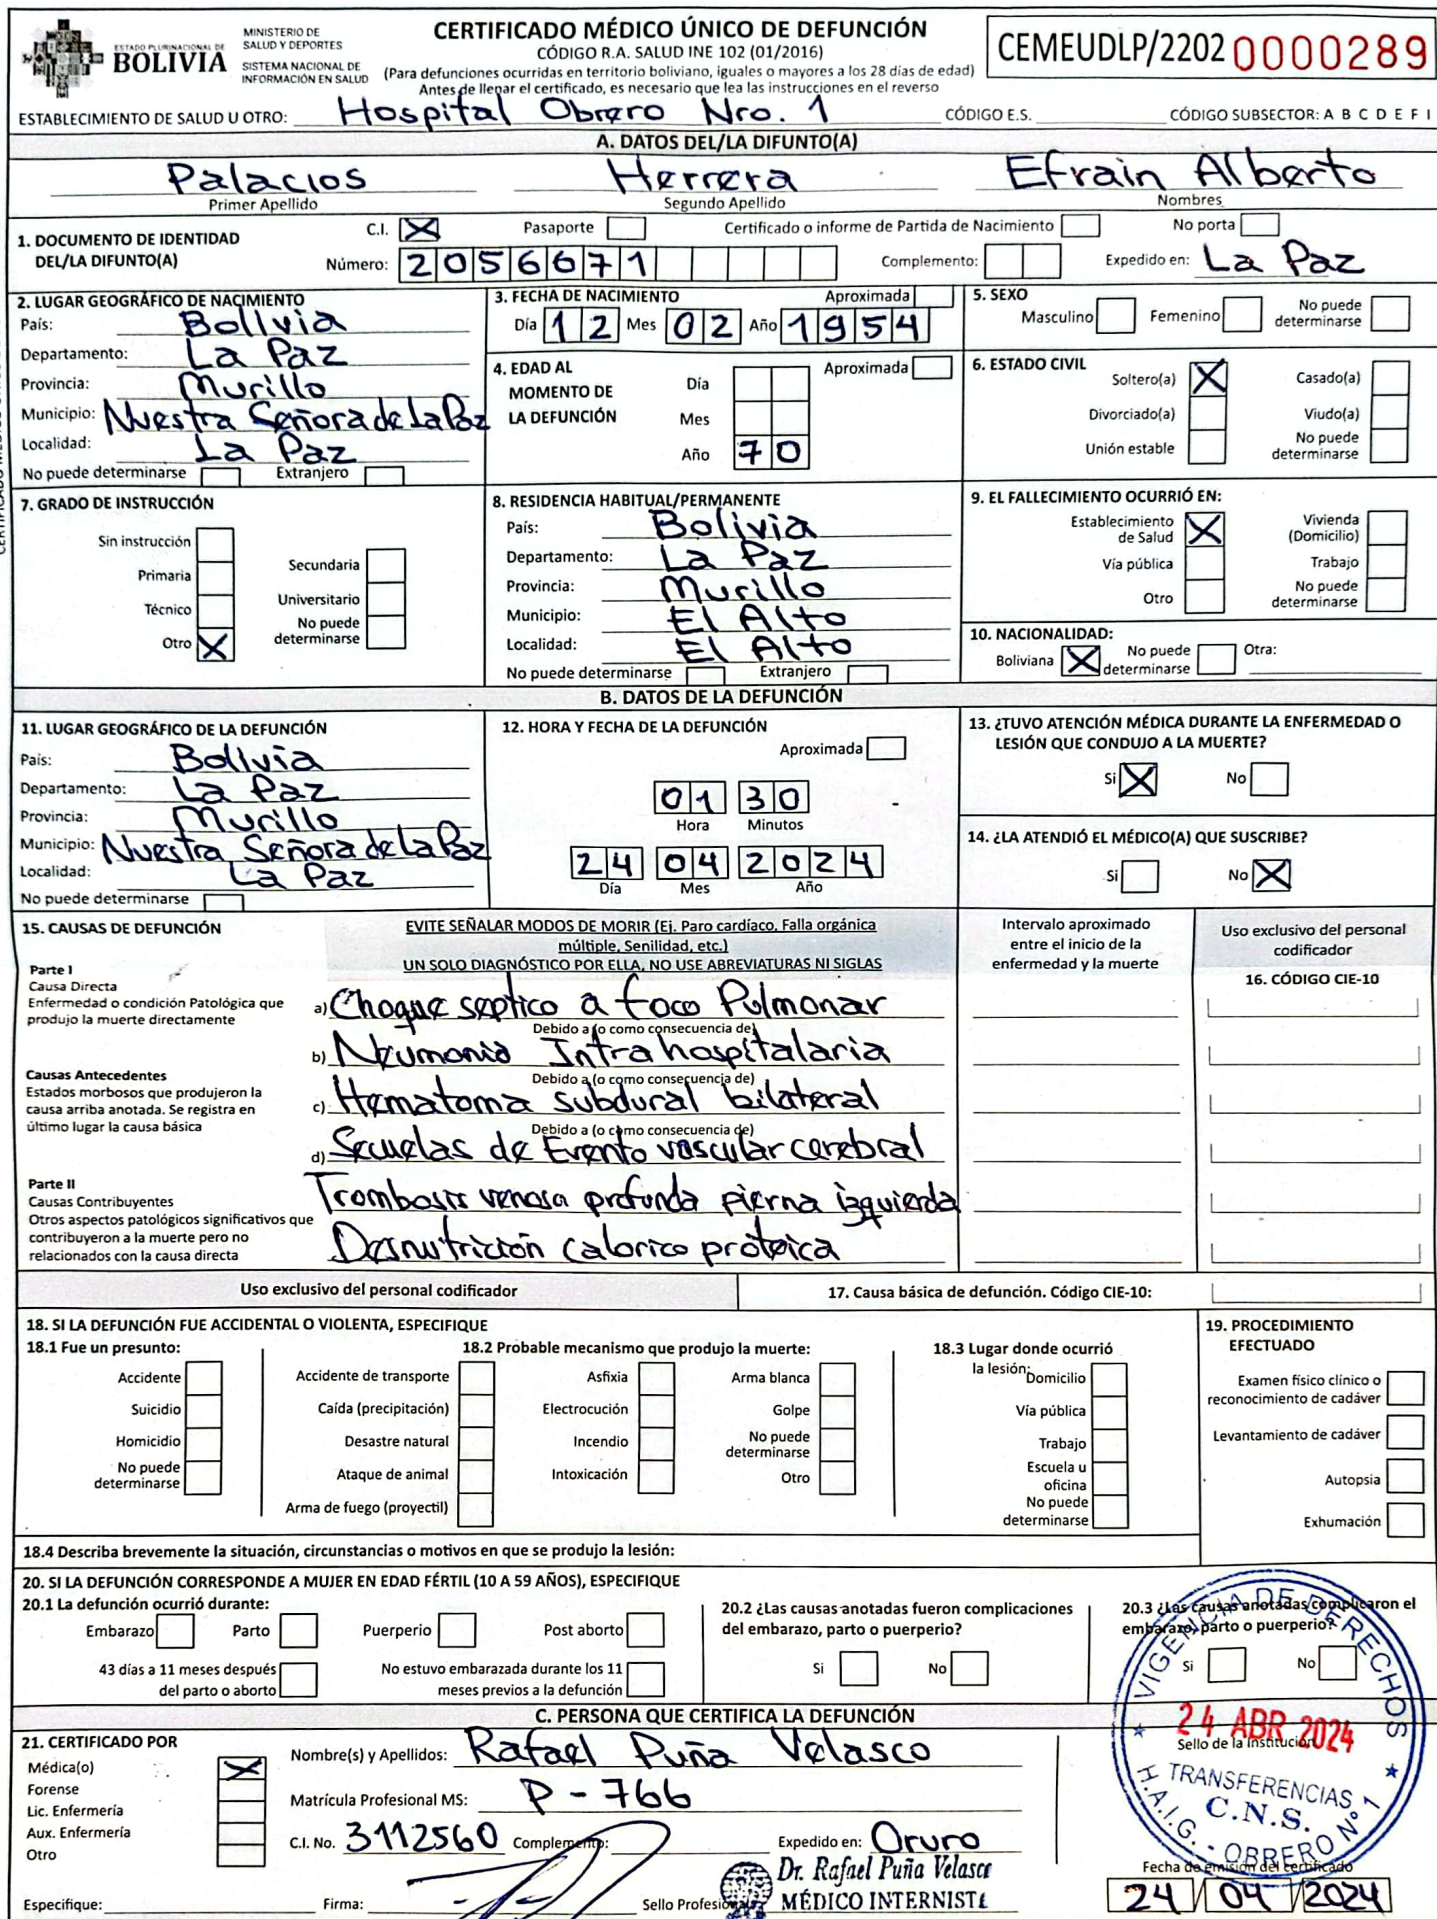 ESTADO PLURINACIONAL DE
BOLIVIA
MINISTERIO DE
SALUD Y DEPORTES
SISTEMA NACIONAL DE
INFORMACIÓN EN SALUD
CERTIFICADO MÉDICO ÚNICO DE DEFUNCIÓN
CÓDIGO R.A. SALUD INE 102 (01/2016)
(Para defunciones ocurridas en territorio boliviano, iguales o mayores a los 28 días de edad)
Antes de llenar el certificado, es necesario que lea las instrucciones en el reverso
CEMEUDLP/2202 0000289
ESTABLECIMIENTO DE SALUD U OTRO: Hospital Obrero Nro. 1 CÓDIGO E.S. CÓDIGO SUBSECTOR: A B C D E F I
A. DATOS DEL/LA DIFUNTO(A)
Palacios Herrera Efrain Alberto
Primer Apellido Segundo Apellido Nombres
1. DOCUMENTO DE IDENTIDAD DEL/LA DIFUNTO(A)
C.I. X Pasaporte Certificado o informe de Partida de Nacimiento No porta
Número: 2056671 Complemento: Expedido en: La Paz
2. LUGAR GEOGRÁFICO DE NACIMIENTO
País: Bolivia
Departamento: La Paz
Provincia: Murillo
Municipio: Nuestra Señora de La Paz
Localidad: La Paz
No puede determinarse Extranjero
3. FECHA DE NACIMIENTO Aproximada
Día 12 Mes 02 Año 1954
4. EDAD AL MOMENTO DE LA DEFUNCIÓN Aproximada
Día
Mes
Año 70
5. SEXO
Masculino Femenino No puede determinarse
6. ESTADO CIVIL
Soltero(a) X Casado(a)
Divorciado(a) Viudo(a)
Unión estable No puede determinarse
7. GRADO DE INSTRUCCIÓN
Sin instrucción
Primaria Secundaria
Técnico Universitario
Otro X No puede determinarse
8. RESIDENCIA HABITUAL/PERMANENTE
País: Bolivia
Departamento: La Paz
Provincia: Murillo
Municipio: El Alto
Localidad: El Alto
No puede determinarse Extranjero
9. EL FALLECIMIENTO OCURRIÓ EN:
Establecimiento de Salud X Vivienda (Domicilio)
Vía pública Trabajo
Otro No puede determinarse
10. NACIONALIDAD:
Boliviana X No puede determinarse Otra:
B. DATOS DE LA DEFUNCIÓN
11. LUGAR GEOGRÁFICO DE LA DEFUNCIÓN
País: Bolivia
Departamento: La Paz
Provincia: Murillo
Municipio: Nuestra Señora de La Paz
Localidad: La Paz
No puede determinarse
12. HORA Y FECHA DE LA DEFUNCIÓN
Aproximada
01 30
Hora Minutos
24 04 2024
Día Mes Año
13. ¿TUVO ATENCIÓN MÉDICA DURANTE LA ENFERMEDAD O
LESIÓN QUE CONDUJO A LA MUERTE?
Si X No
14. ¿LA ATENDIÓ EL MÉDICO(A) QUE SUSCRIBE?
Si No X
15. CAUSAS DE DEFUNCIÓN
EVITE SEÑALAR MODOS DE MORIR (Ej. Paro cardíaco, Falla orgánica
múltiple, Senilidad, etc.)
UN SOLO DIAGNÓSTICO POR ELLA, NO USE ABREVIATURAS NI SIGLAS
Intervalo aproximado
entre el inicio de la
enfermedad y la muerte
Uso exclusivo del personal
codificador
16. CÓDIGO CIE-10
Parte I
Causa Directa
Enfermedad o condición Patológica que
produjo la muerte directamente
a) Choque septico a foco Pulmonar
Debido a (o como consecuencia de)
b) Neumonia Intrahospitalaria
Causas Antecedentes
Estados morbosos que produjeron la
causa arriba anotada. Se registra en
último lugar la causa básica
Debido a (o como consecuencia de)
c) Hematoma subdural bilateral
Debido a (o como consecuencia de)
d) Secuelas de Evento vascular cerebral
Parte II
Causas Contribuyentes
Otros aspectos patológicos significativos que
contribuyeron a la muerte pero no
relacionados con la causa directa
Trombosis venosa profunda pierna izquierda
Desnutrición calorico proteica
Uso exclusivo del personal codificador 17. Causa básica de defunción. Código CIE-10:
18. SI LA DEFUNCIÓN FUE ACCIDENTAL O VIOLENTA, ESPECIFIQUE
18.1 Fue un presunto:
Accidente
Suicidio
Homicidio
No puede determinarse
18.2 Probable mecanismo que produjo la muerte:
Accidente de transporte Asfixia Arma blanca
Caída (precipitación) Electrocución Golpe
Desastre natural Incendio No puede determinarse
Ataque de animal Intoxicación Otro
Arma de fuego (proyectil)
18.3 Lugar donde ocurrió
la lesión:
Domicilio
Vía pública
Trabajo
Escuela u oficina
No puede determinarse
19. PROCEDIMIENTO
EFECTUADO
Examen físico clínico o
reconocimiento de cadáver
Levantamiento de cadáver
Autopsia
Exhumación
18.4 Describa brevemente la situación, circunstancias o motivos en que se produjo la lesión:
20. SI LA DEFUNCIÓN CORRESPONDE A MUJER EN EDAD FÉRTIL (10 A 59 AÑOS), ESPECIFIQUE
20.1 La defunción ocurrió durante:
Embarazo Parto Puerperio Post aborto
43 días a 11 meses después
del parto o aborto
No estuvo embarazada durante los 11
meses previos a la defunción
20.2 ¿Las causas anotadas fueron complicaciones
del embarazo, parto o puerperio?
Si No
20.3 ¿Las causas anotadas complicaron el
embarazo, parto o puerperio?
Si No
C. PERSONA QUE CERTIFICA LA DEFUNCIÓN
21. CERTIFICADO POR
Médica(o) X
Forense
Lic. Enfermería
Aux. Enfermería
Otro
Especifique:
Nombre(s) y Apellidos: Rafael Puña Velasco
Matrícula Profesional MS: P-766
C.I. No. 3112560 Complemento: Expedido en: Oruro
Firma: Sello Profesional
Dr. Rafael Puña Velasco
MÉDICO INTERNISTA
VIGENCIA DE DERECHOS
24 ABR 2024
Sello de la Institución
TRANSFERENCIAS
C.N.S.
H.A.I.G. - OBRERO N° 1
Fecha de emisión del certificado
24 04 2024